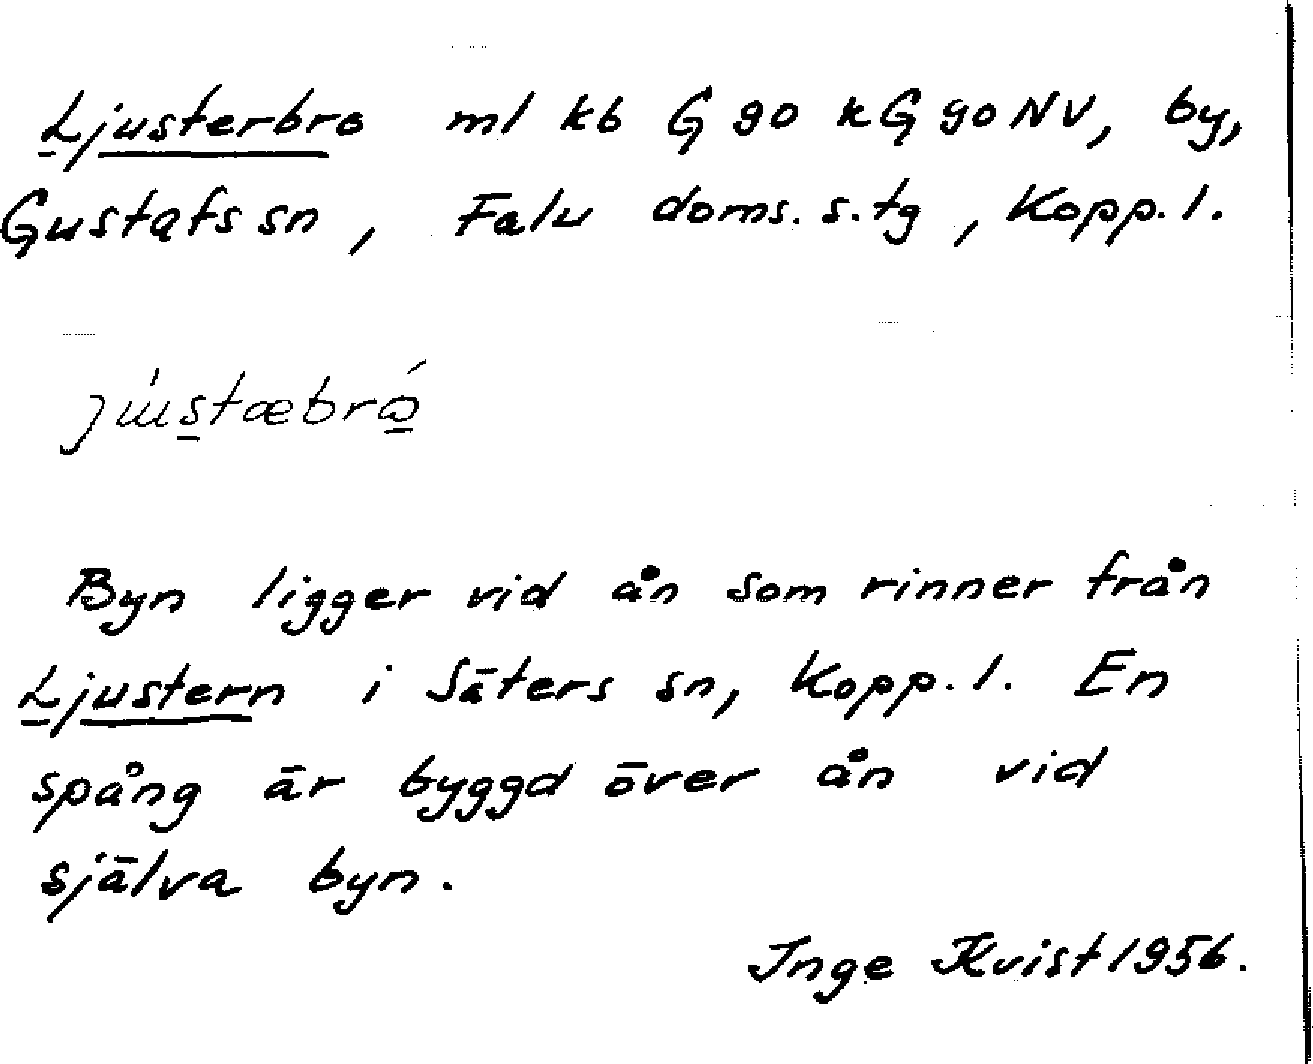 Ljusterbro ml kb G 90 kG 90 NV, by,
Gustafs sn, Falu doms. s. tg, Kopp. l.
Byn ligger vid ån som rinner från
Ljustern i Säters sn, Kopp. l. En
spång är byggd över ån vid
själva byn.
Inge Kvist 1956.